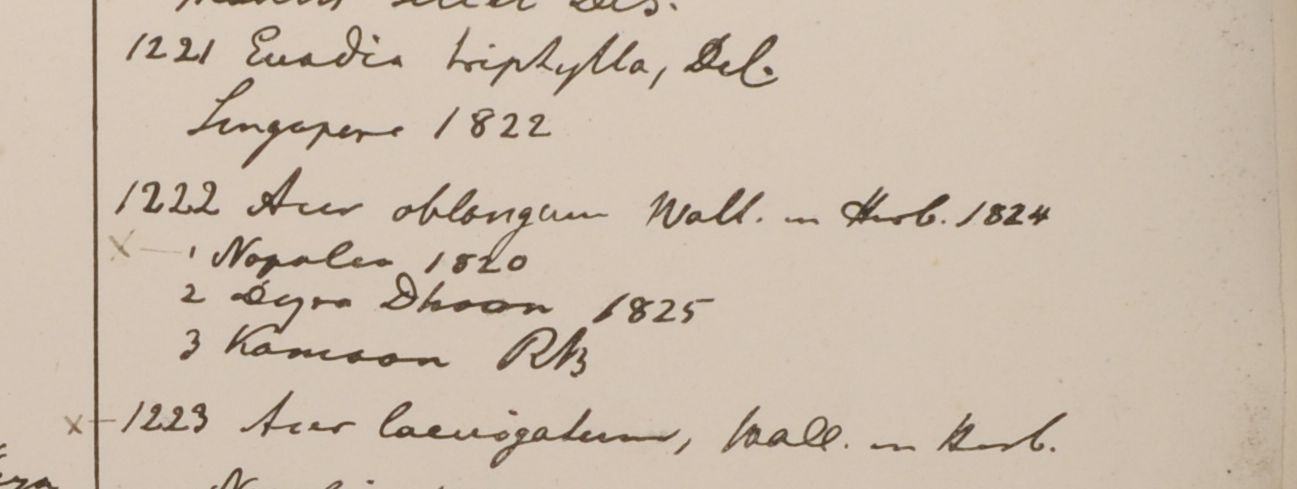 1221 Euadia triphylla, Del.
Singapore 1822
1222 Acer oblongum Wall. in Herb. 1824
x 1 Napalea 1820
2 Deyra Dhoon 1825
3 Kamaon RB
x 1223 Acer laevigatum, Wall. in Herb.